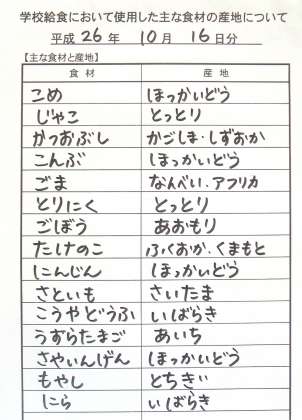 学校給食において使用した主な食材の産地について
平成 26 年 10 月 16 日分
【主な食材と産地】
食材 産地
こめ ほっかいどう
じゃこ とっとり
かつおぶし かごしま・しずおか
こんぶ ほっかいどう
ごま なんべい、アフリカ
とりにく とっとり
ごぼう あおもり
たけのこ ふくおか、くまもと
にんじん ほっかいどう
さといも さいたま
こうやどうふ いばらき
うずらたまご あいち
さやいんげん ほっかいどう
もやし とちぎ
にら いばらき